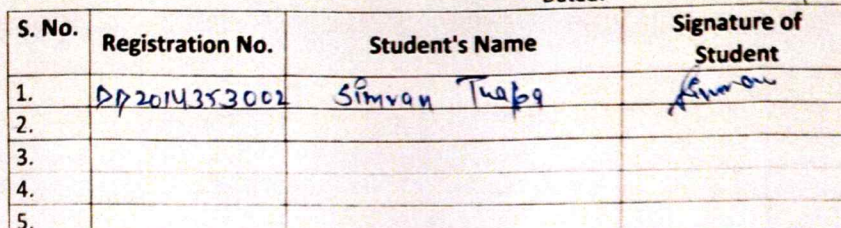 S. No. Registration No. Student's Name Signature of Student
1. DD2014353002 Simran Thapa Simran
2.
3.
4.
5.